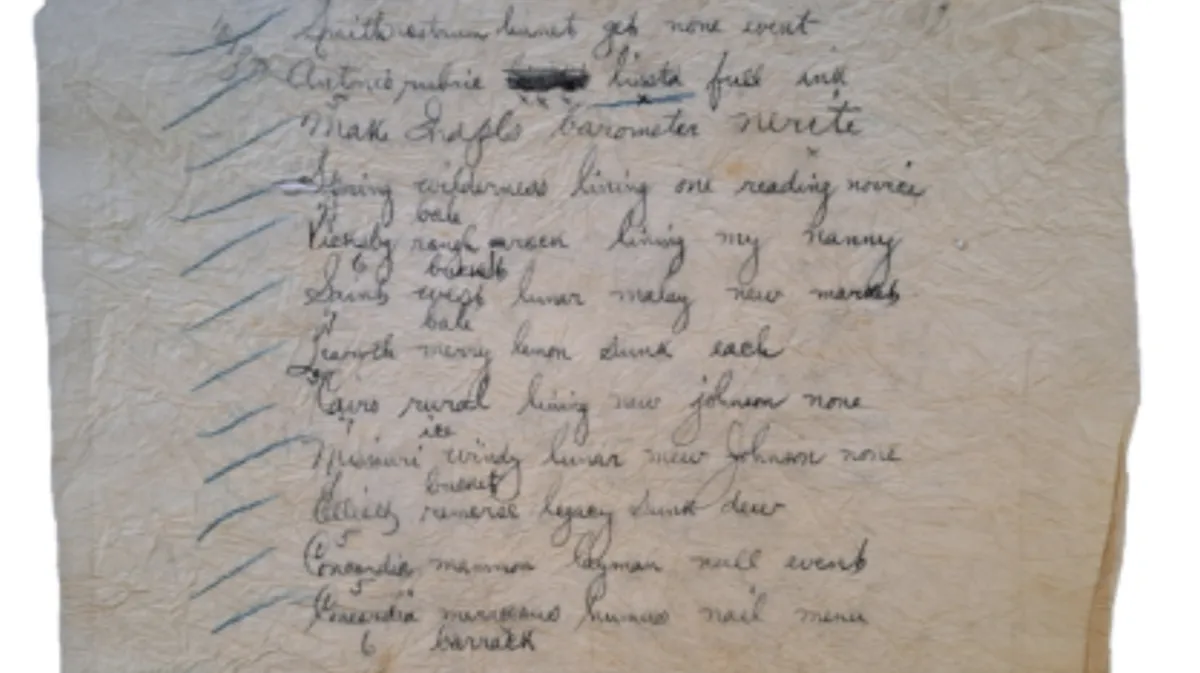 Smith nostrum linnet get none event
Antonio rubric lissta full ink
5
Make Indpls barometer nerite
Spring wilderness lining one reading novice
bale
Vicksby rough rack lining my nanny
6 bucket
Saint west lunar malay new market
bale
Leavwth merry lemon sunk each
Cairo rural lining new johnson none
ice
Missouri windy lunar mew Johnson none
bucket
remorse legacy sunk dew
5
Concordia mammon layman null event
5
Concordia humus nail menu
6 barrack